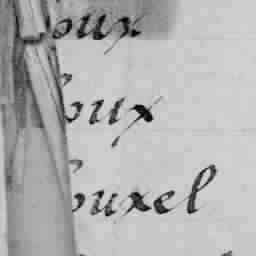 oux
oux
ouxel